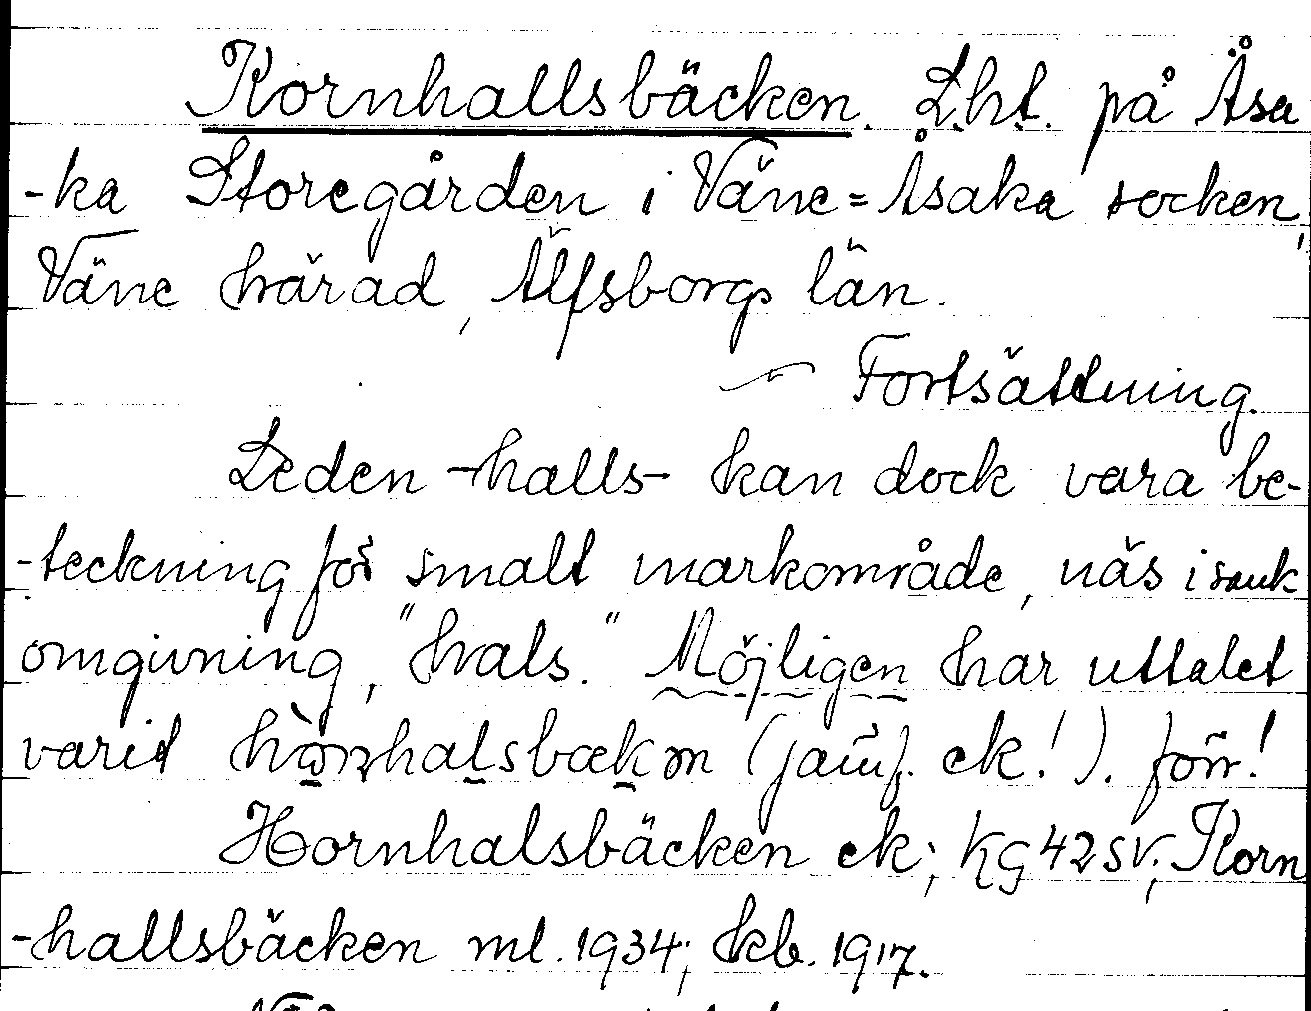 Kornhallsbäcken. Lht. på Åsa
-ka Storegården i Väne=Åsaka socken,
Väne härad, Älfsborgs län.
Fortsättning.
Leden -halls- kan dock vara be-
-teckning för smalt markområde, näs i sank
omgivning, "hals." Möjligen har uttalet
varit (jämf. ek!). förr!
Hornhalsbäcken ek; kg 42 SV; Korn
-hallsbäcken ml. 1934; kb. 1917.